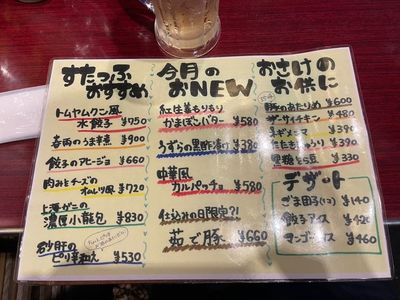 すたっふ
おすすめ
トムヤムクン風
水餃子 ¥950
春雨のうま煮 ¥900
餃子のアヒージョ ¥660
肉みそチーズの
オムレツ風 ¥720
上海ガニの
濃厚小籠包 ¥830
砂肝の
ピリ辛和え ¥530
今月の
おNEW
紅生姜もりもり
かまぼこバター ¥580
うずらの黒酢漬け ¥380
中華風
カルパッチョ ¥580
仕込みの日限定?!
茹で豚 ¥660
おさけの
お供に
豚のあたりめ ¥600
ザーサイチキン ¥480
¥390
たたききゅうり ¥390
黒糖そら豆 ¥330
デザート
ごま団子(1コ) ¥140
餃子アイス ¥420
マンゴーアイス ¥460